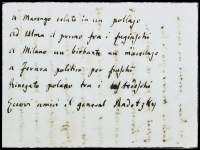 a Marengo celato in un pollajo
ad Ulma il primo fra i fuggiaschi
a Milano un birbante un macellajo
a Ferrara politico per fuggirschi
Rinegato polacco tra i tedeschi
Eccovi amici il general Radetzky